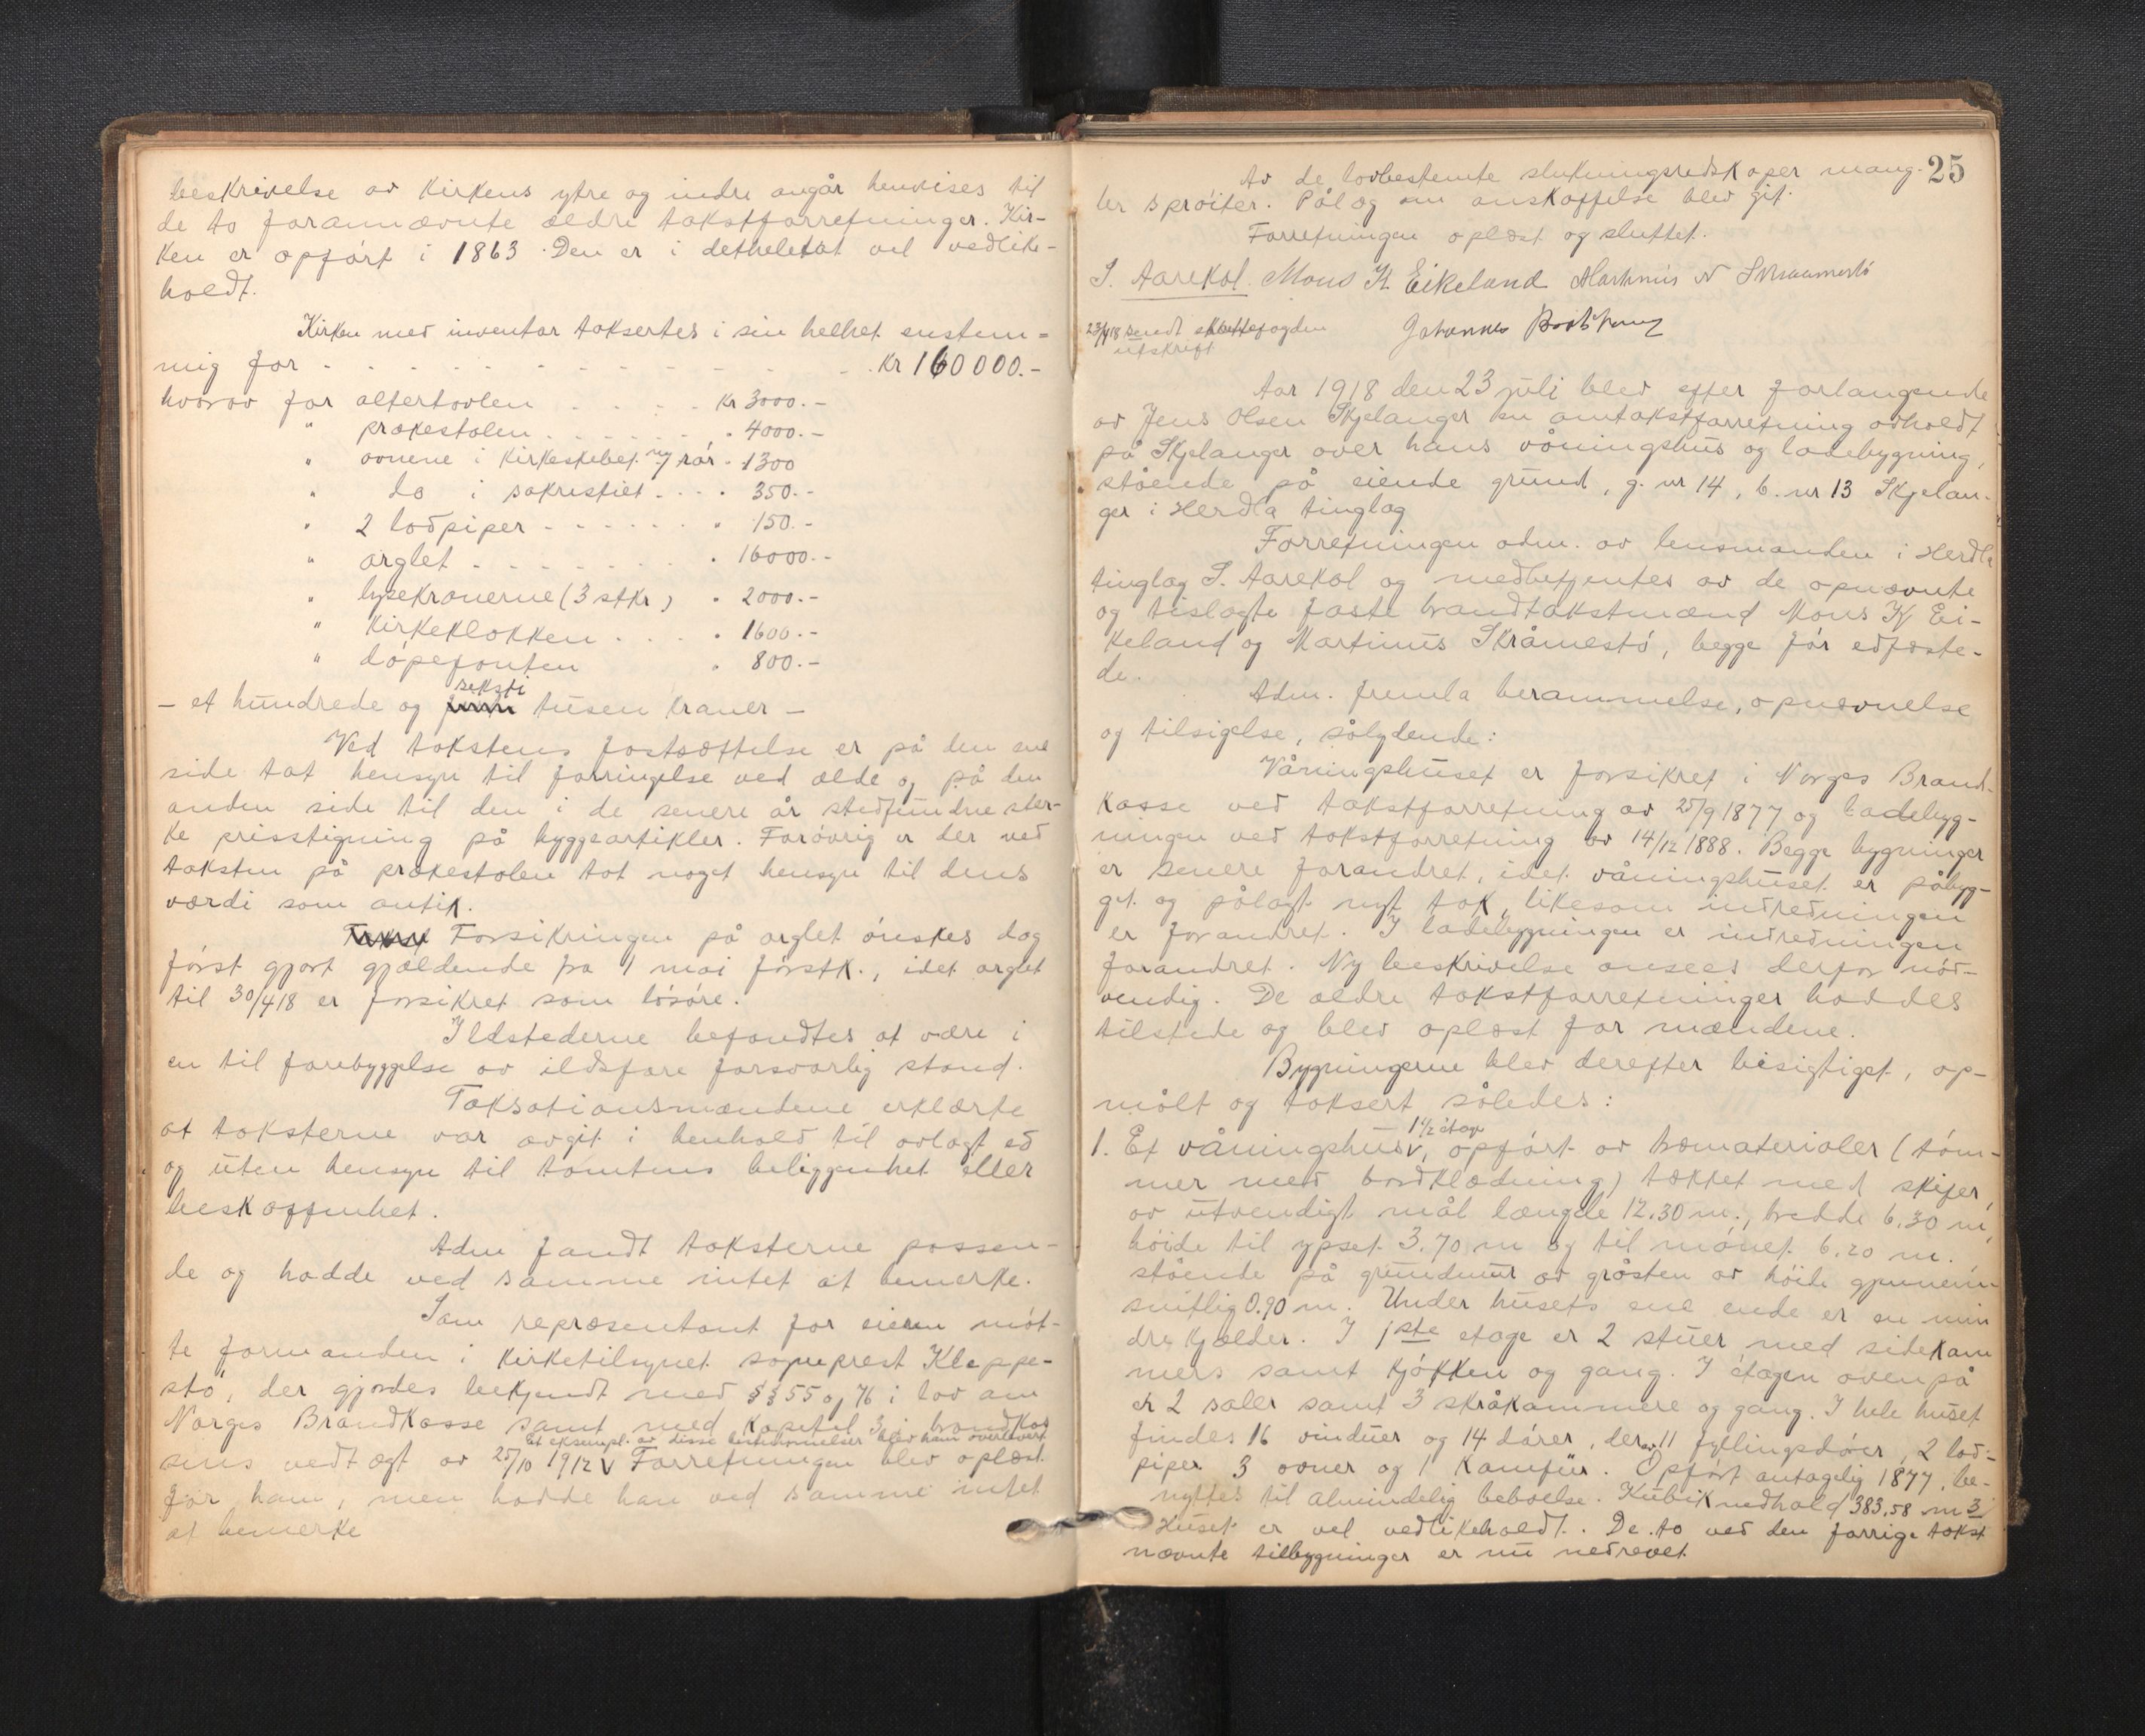 beskrivelse av kirkens ytre og indre angår henvises til
de to forannævnte ældre takstforretninger. Kir-
ken er opført i 1863. Den er i detheletat vel vedlike-
holdt.
Kirken med inventar taksertes i sin helhet enstem-
mig for . . . . . . . . . . . . Kr 160000.-
hvorav for altertavlen . . . . Kr 3000.-
" prækestolen . . . . . . " 4000.-
" ovnene i kirkeskibet m/ rør " 1300
" do i sakristiet . . . . 350.-
" 2 lodpiper - - - - - - " 150.-
" orglet . . . . . . . . " 16000.-
" lysekronerne (3 stkr) " 2000.-
" kirkeklokken . . . . " 1600.-
" døpefonten " 800.-
seksti
- et hundrede og tusen kroner -
Ved takstens fastsættelse er på den ene
side tat hensyn til forringelse ved ælde og på den
anden side til den i de senere år stedfundne ster-
ke prisstigning på byggeartikler. Forøvrig er der ved
taksten på prækestolen tat noget hensyn til dens
værdi som antik.
Forsikringen på orglet ønskes dog
først gjort gjældende fra 1 mai førstk., idet orglet
til 30/4 18 er forsikret som løsøre.
Ildstederne befandtes at være i
en til forebyggelse av ildsfare forsvarlig stand.
Taksationsmændene erklærte
at taksterne var avgit i henhold til avlagt ed
og uten hensyn til tomtens beliggenhet eller
beskaffenhet.
Adm fandt taksterne passen-
de og hadde ved samme intet at bemerke.
Som repræsentant for eieren møt-
te formanden i kirketilsynet sogneprest Kleppe-
stø, der gjordes bekjendt med §§ 55 og 76 i lov om
Norges Brandkasse samt med kapitel 3 i brandkas
Et eksempl. av disse bestemmelser blev ham overlevert
sens vedtægt av 25/10 1912 v Forretningen blev oplæst
for ham, men hadde han ved samme intet
at bemerke
25
Av de lovbestemte slukningsredskaper mang-
ler sprøiter. Pålæg om anskaffelse blev git.
Forretningen oplæst og sluttet.
S. Aarekol. Mons K. Eikeland Martinus N Skraamestø
23/4 18 sendt skattefogden
utskrift
Aar 1918 den 23 juli blev efter forlangende
av Jens Olsen Skjelanger en omtakstforretning avholdt
på Skjelanger over hans våningshus og ladebygning,
stående på eiende grund, g. nr 14, b. nr 13 Skjelan-
ger i Herdla tinglag
Forretningen adm. av lensmanden i Herdla
tinglag S. Aarekol og medbetjentes av de opnævnte
og tilsagte faste brandtakstmænd Mons K Ei-
keland og Martinus Skråmestø, begge før edfæste-
de.
Adm. fremla berammelse, opnævnelse
og tilsigelse, sålydende:
Våningshuset er forsikret i Norges Brand-
kasse ved takstforretning av 25/9 1877 og ladebyg-
ningen ved takstforretning av 14/12 1888. Begge bygninger
er senere forandret, idet våningshuset er påbyg-
get og pålagt nyt tak, likesom indredningen
er forandret. I ladebygningen er indredningen
forandret. Ny beskrivelse ansees derfor nød-
vendig. De ældre takstforretninger haddes
tilstede og blev oplæst for mændene.
Bygningerne blev derefter besigtiget, op-
målt og taksert således:
1 1/2 etage
1. Et våningshus v, opført av træmaterialer (tøm-
mer med bordklædning) tækket med skifer,
av utvendigt mål længde 12.30 m., bredde 6.30 m,
høide til gpset 3.70 m og til mønet 6.20 m.
stående på grundmur av gråsten av høide gjennem
snitlig 0.90 m. Under husets ene ende er en min
dre kjælder. I 1ste etage er 2 stuer med sidekam
mers samt kjøkken og gang. I etagen ovenpå
er 2 saler samt 3 skråkammere og gang. I hele huset
findes 16 vinduer og 14 dører, derav 11 fyllingsdører, 2 lod-
piper 3 ovner og 1 komfur. Opført antagelig 1877, be-
nyttes til almindelig beboelse. Kubikindhold 383,58 m3
Huset er vel vedlikeholdt. De to ved den forrige takst
nævnte tilbygninger er nu nedrevet.